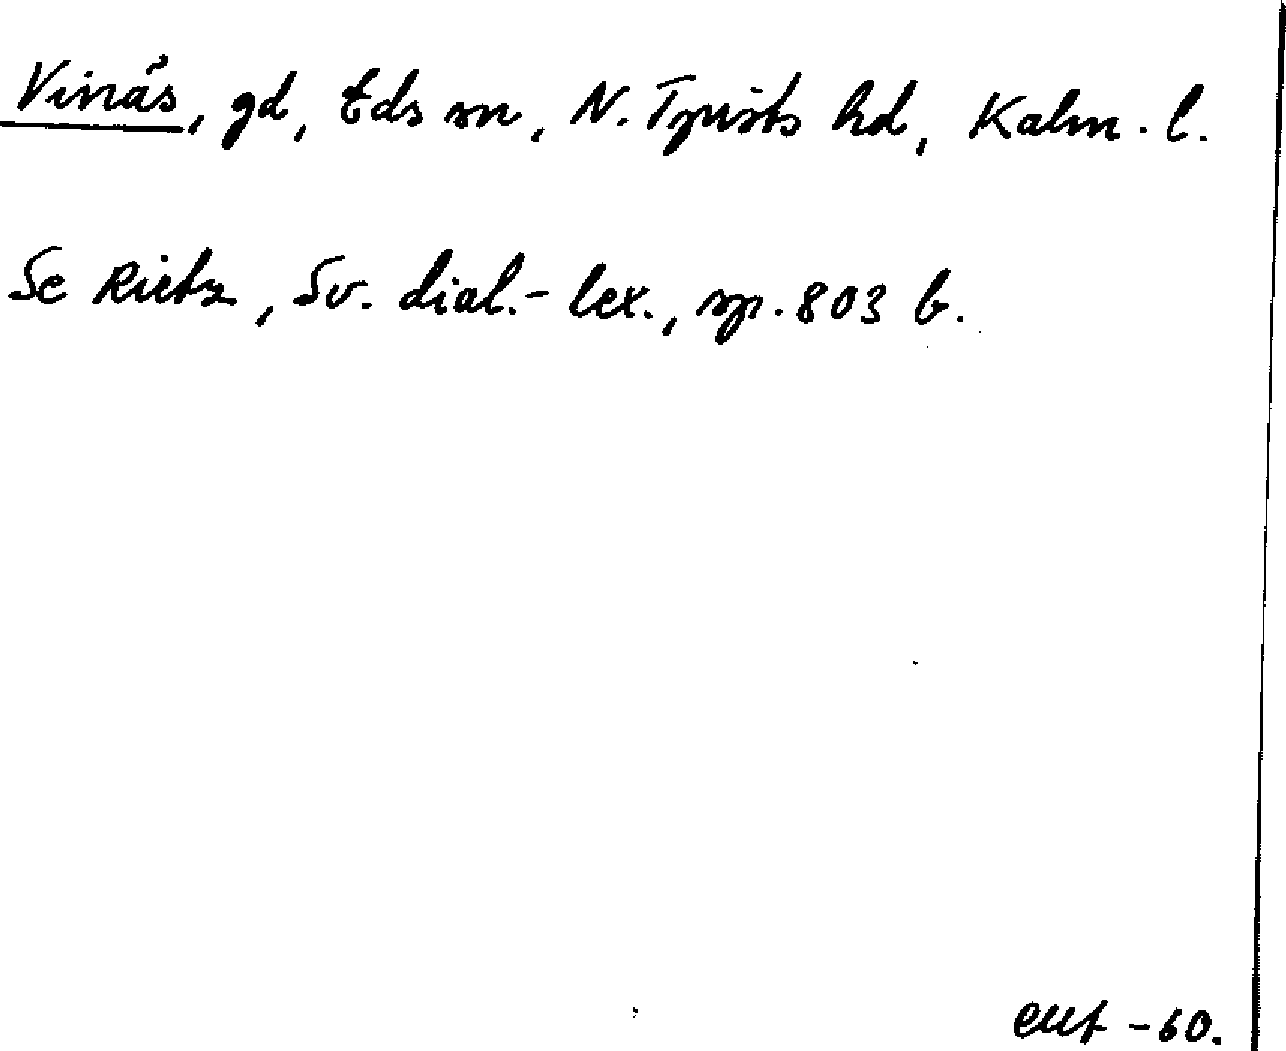 Vinås, gd, Eds sn, N. Tjusts hd, Kalm. l.
Se Rietz, Sv. dial.-lex., sp. 803 b.
-60.